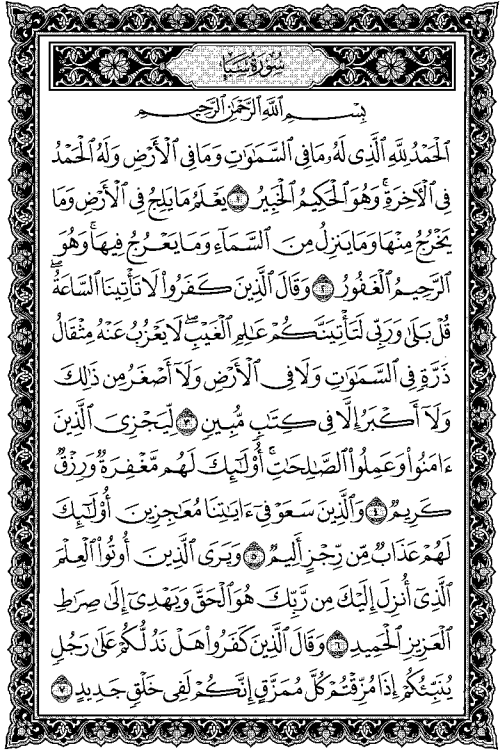 سُورَةُ سَبَإٍ
بِسْمِ ٱللَّهِ ٱلرَّحْمَٰنِ ٱلرَّحِيمِ
ٱلْحَمْدُ لِلَّهِ ٱلَّذِى لَهُۥ مَا فِى ٱلسَّمَٰوَٰتِ وَمَا فِى ٱلْأَرْضِ وَلَهُ ٱلْحَمْدُ
فِى ٱلْأَخِرَةِ ۚ وَهُوَ ٱلْحَكِيمُ ٱلْخَبِيرُ ١ يَعْلَمُ مَا يَلِجُ فِى ٱلْأَرْضِ وَمَا
يَخْرُجُ مِنْهَا وَمَا يَنزِلُ مِنَ ٱلسَّمَآءِ وَمَا يَعْرُجُ فِيهَا ۚ وَهُوَ
ٱلرَّحِيمُ ٱلْغَفُورُ ٢ وَقَالَ ٱلَّذِينَ كَفَرُوا۟ لَا تَأْتِينَا ٱلسَّاعَةُ ۖ
قُلْ بَلَىٰ وَرَبِّى لَتَأْتِيَنَّكُمْ عَٰلِمِ ٱلْغَيْبِ ۖ لَا يَعْزُبُ عَنْهُ مِثْقَالُ
ذَرَّةٍ فِى ٱلسَّمَٰوَٰتِ وَلَا فِى ٱلْأَرْضِ وَلَآ أَصْغَرُ مِن ذَٰلِكَ
وَلَآ أَكْبَرُ إِلَّا فِى كِتَٰبٍ مُّبِينٍ ٣ لِّيَجْزِىَ ٱلَّذِينَ
ءَامَنُوا۟ وَعَمِلُوا۟ ٱلصَّٰلِحَٰتِ ۚ أُو۟لَٰٓئِكَ لَهُم مَّغْفِرَةٌ وَرِزْقٌ
كَرِيمٌ ٤ وَٱلَّذِينَ سَعَوْ فِىٓ ءَايَٰتِنَا مُعَٰجِزِينَ أُو۟لَٰٓئِكَ
لَهُمْ عَذَابٌ مِّن رِّجْزٍ أَلِيمٌ ٥ وَيَرَى ٱلَّذِينَ أُوتُوا۟ ٱلْعِلْمَ
ٱلَّذِىٓ أُنزِلَ إِلَيْكَ مِن رَّبِّكَ هُوَ ٱلْحَقَّ وَيَهْدِىٓ إِلَىٰ صِرَٰطِ
ٱلْعَزِيزِ ٱلْحَمِيدِ ٦ وَقَالَ ٱلَّذِينَ كَفَرُوا۟ هَلْ نَدُلُّكُمْ عَلَىٰ رَجُلٍ
يُنَبِّئُكُمْ إِذَا مُزِّقْتُمْ كُلَّ مُمَزَّقٍ إِنَّكُمْ لَفِى خَلْقٍ جَدِيدٍ ٧